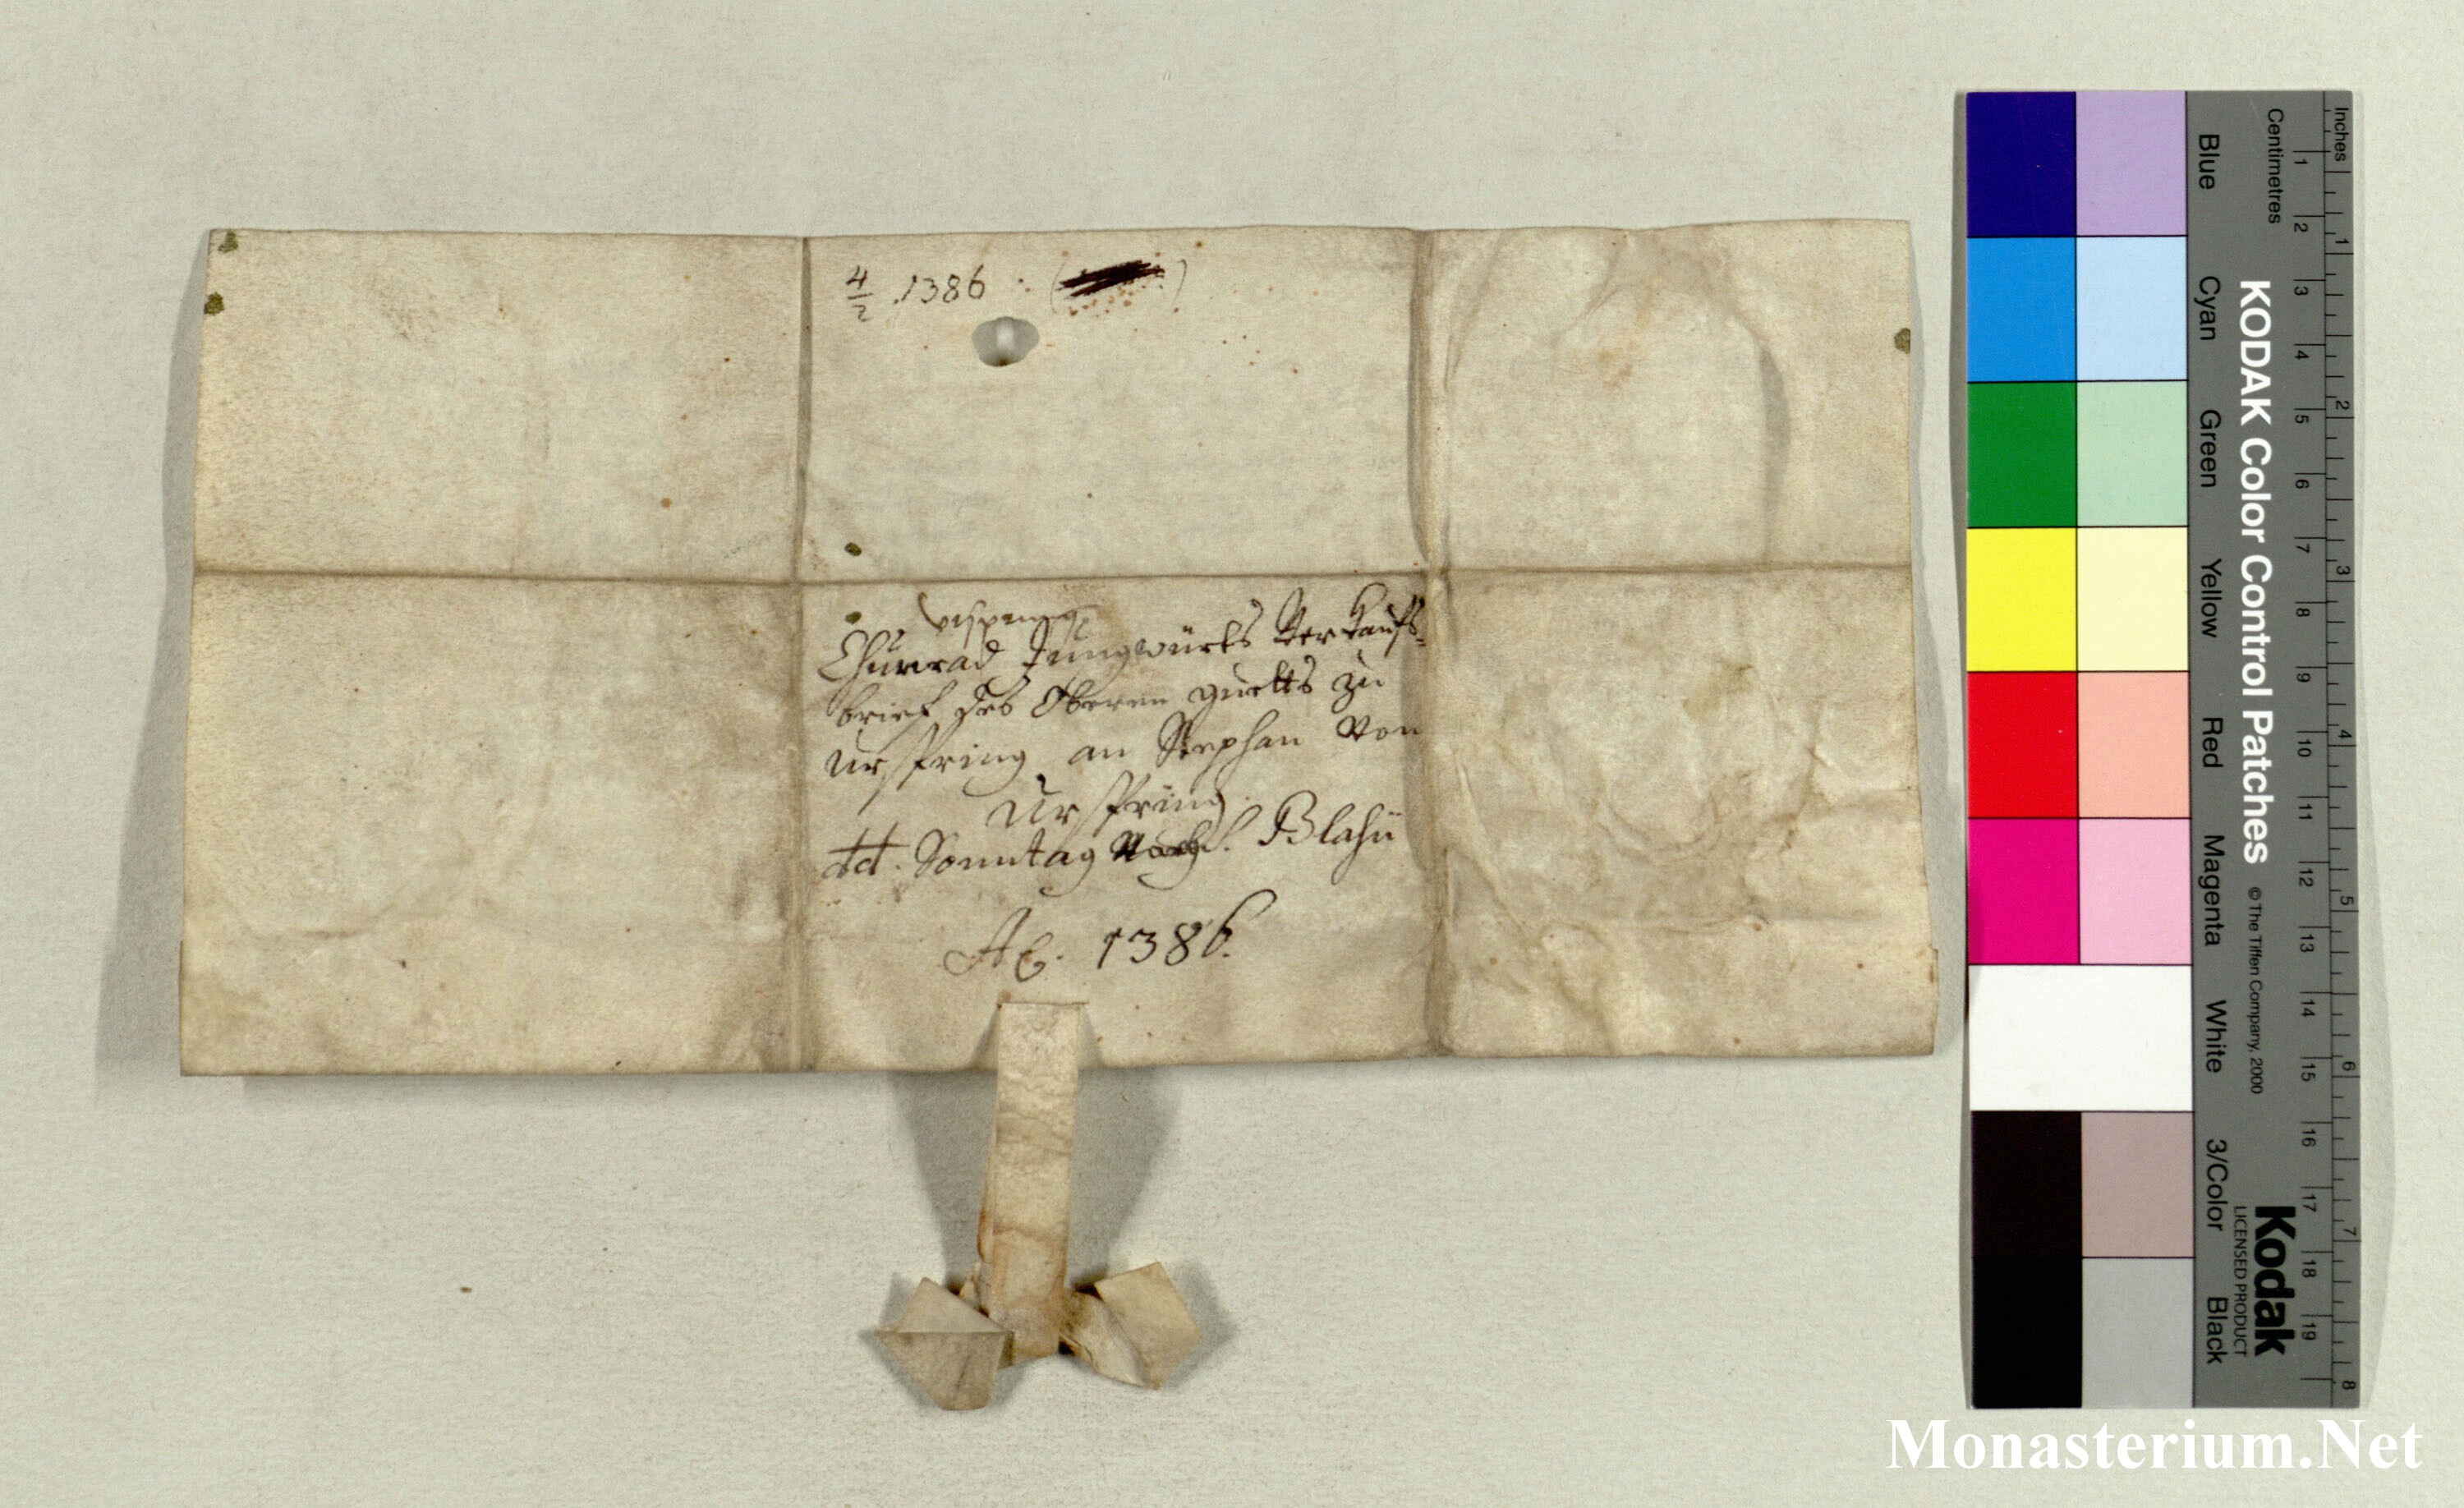 4/2 1386 : ( )
urspring
Chunrad Jungwürts Verkaufs-
brief des Oberen guetts zu
Urspring an Stephan Von
Urspring.
dd. Sonntag Nach S. Blasii
Ao. 1386.
Inches
Centimetres
1 2 3 4 5 6 7 8 9 10 11 12 13 14 15 16 17 18 19
1 2 3 4 5 6 7 8
KODAK Color Control Patches
© The Tiffen Company, 2000
Kodak
LICENSED PRODUCT
Blue Cyan Green Yellow Red Magenta White 3/Color Black
Monasterium.Net